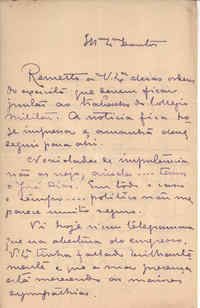 Remetto a V. Exª duas ordens
do exercito que devem ficar
juntas ao trabalho do Collegio
Militar. A noticia fica
se imprensa e amanhã
seguir para ahi.
Novidades de importancia
não as vejo, ainda.... temos
o José Dias. Em todo o caso
o tempo.... politico não me
parece muito seguro.
Vi hoje n'um telegramma
que na abertura do congresso
V. Exª tinha fallado brilhante
mente e que a sua presença
está merecendo as maiores
sympathias.